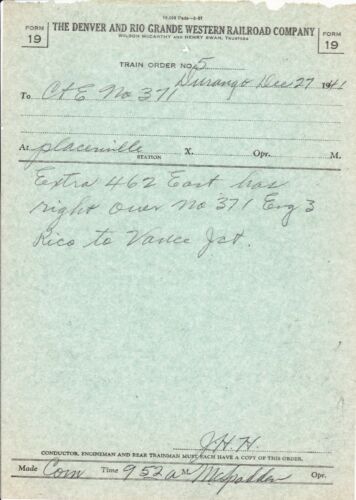 10,000 Pads—3-37
FORM 19
THE DENVER AND RIO GRANDE WESTERN RAILROAD COMPANY
WILSON McCARTHY AND HENRY SWAN, TRUSTEES
FORM 19
TRAIN ORDER NO. 5
Durango Dec 27 1941
To C&E No 371
At placerville STATION X. Opr. M.
Extra 462 East has
right over No 371 Eng 3
Rico to Vance Jct.
J.H.H.
CONDUCTOR, ENGINEMAN AND REAR TRAINMAN MUST EACH HAVE A COPY OF THIS ORDER.
Made Com Time 952a M McSpadden Opr.